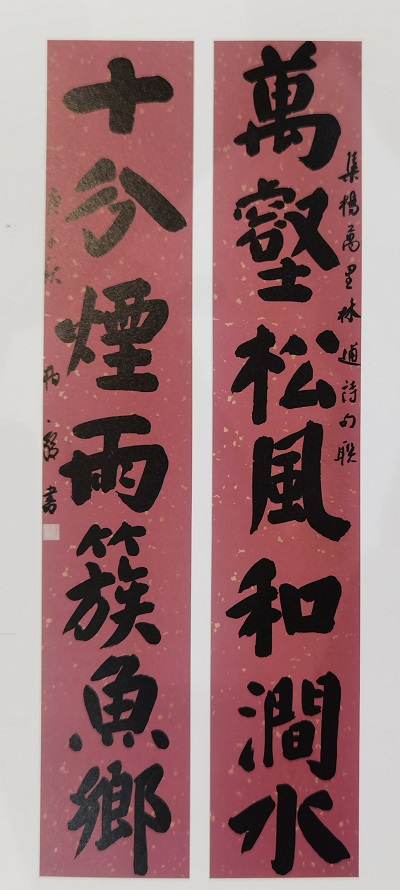 集楊萬里林逋詩句聯
萬壑松風和澗水
十分煙雨簇魚鄉
書